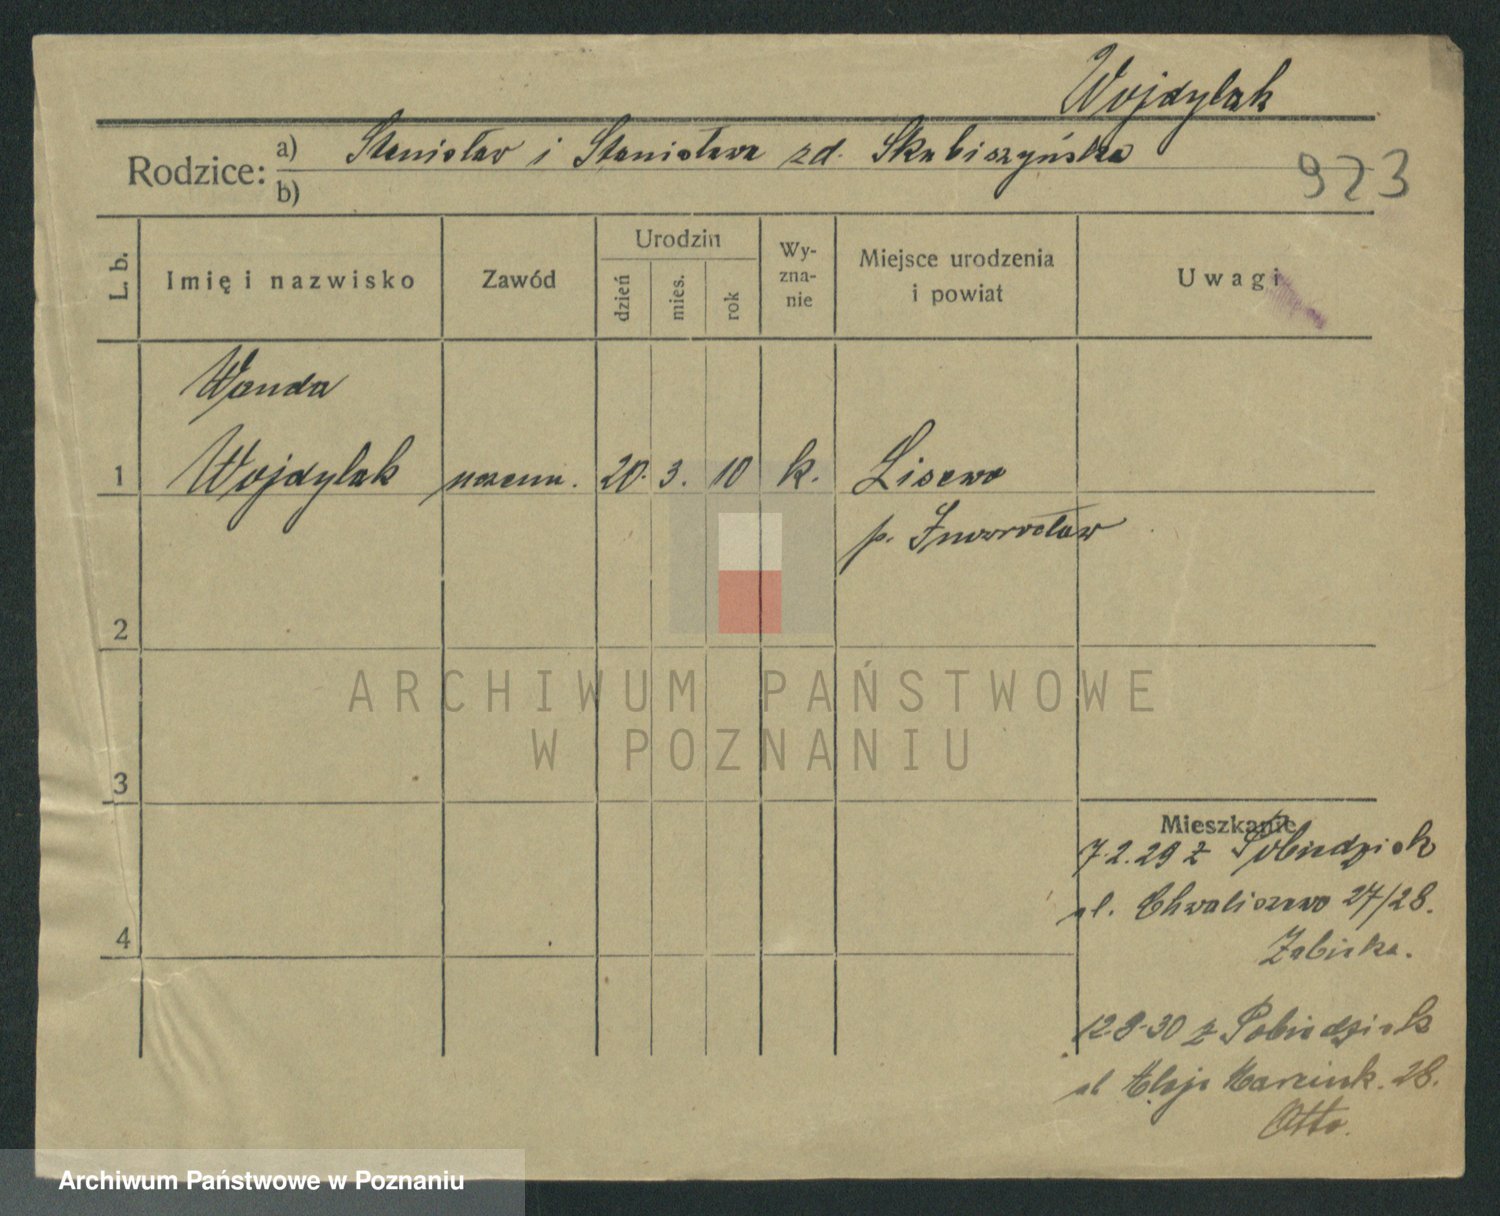 Wojdylak
Rodzice: a) Stanisław i Stanisława zd. Skabiszyńska
b)
923
L. b.
Imię i nazwisko
Zawód
Urodzin
dzień
mies.
rok
Wy-
zna-
nie
Miejsce urodzenia
i powiat
Uwagi
Wanda
1 Wojdylak uczenn. 20. 3. 10 k. Lisewo
p. Inowrocław
2
ARCHIWUM PAŃSTWOWE
W POZNANIU
3
Mieszkanie
7.2.29 z Pobiedzisk
ul. Chwaliszewo 27/28.
Żabicka.
4
12-8-30 z Pobiedzisk
ul Aleje Marcink. 28.
Otto.
Archiwum Państwowe w Poznaniu